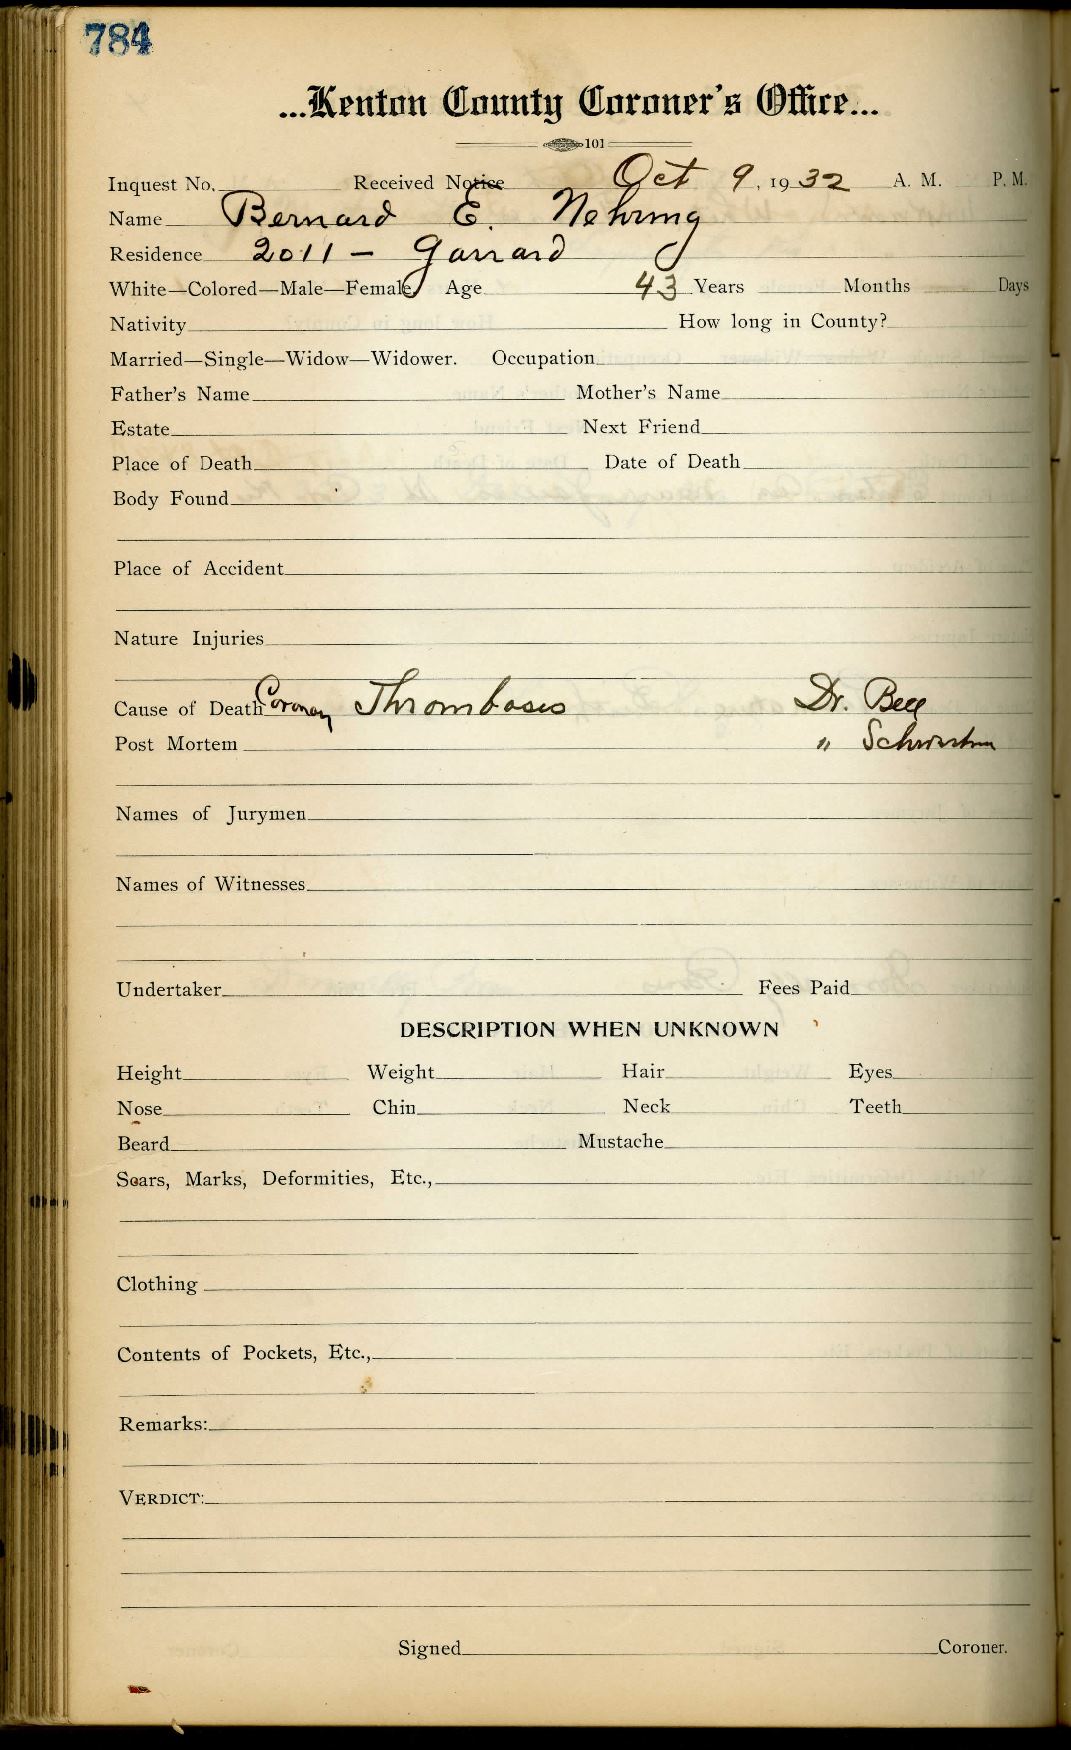 784
...Kenton County Coroner's Office...
101
Inquest No. Received Notice Oct 9, 1932 A. M. P. M.
Name Bernard E. Nehring
Residence 2011 - Garrard
White—Colored—Male—Female Age 43 Years Months Days
Nativity How long in County?
Married—Single—Widow—Widower. Occupation
Father's Name Mother's Name
Estate Next Friend
Place of Death Date of Death
Body Found
Place of Accident
Nature Injuries
Cause of Death Coronary Thrombosis Dr. Bell
Post Mortem "
Names of Jurymen
Names of Witnesses
Undertaker Fees Paid
DESCRIPTION WHEN UNKNOWN
Height Weight Hair Eyes
Nose Chin Neck Teeth
Beard Mustache
Scars, Marks, Deformities, Etc.,
Clothing
Contents of Pockets, Etc.,
Remarks:
VERDICT:
Signed Coroner.